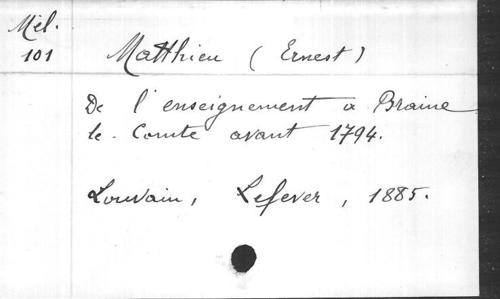 Mél.
101
Matthieu (Ernest)
De l'enseignement a Braine
le-Comte avant 1794.
Louvain, Lefever, 1885.